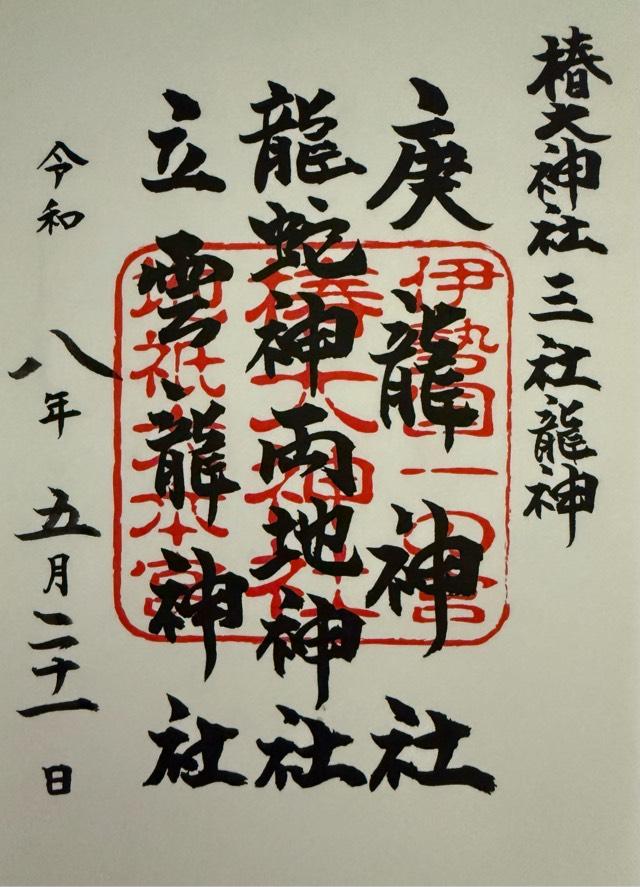 椿大神社三社龍神
庚龍神社
龍蛇神両地神社
立雲龍神社
令和八年五月二十一日
伊勢国一の宮
椿大神社
地祇大本宮